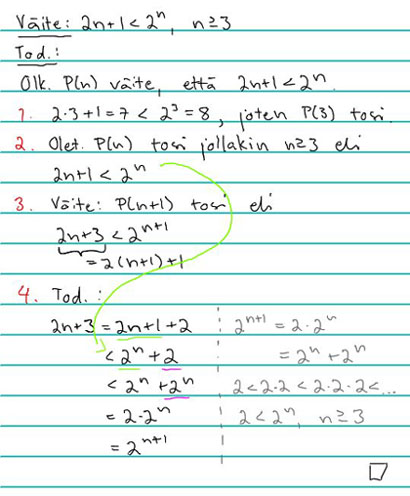 Väite: 2n+1 < 2ⁿ, n≥3
Tod.:
Olk. P(n) väite, että 2n+1 < 2ⁿ.
1. 2·3+1 = 7 < 2³ = 8, joten P(3) tosi.
2. Olet. P(n) tosi jollakin n≥3 eli
2n+1 < 2ⁿ
3. Väite: P(n+1) tosi eli
2n+3 < 2ⁿ⁺¹
= 2(n+1)+1
4. Tod.:
2n+3 = 2n+1+2
< 2ⁿ + 2
< 2ⁿ + 2ⁿ
= 2·2ⁿ
= 2ⁿ⁺¹
2ⁿ⁺¹ = 2·2ⁿ
= 2ⁿ + 2ⁿ
2 < 2·2 < 2·2·2 < ...
2 < 2ⁿ, n≥3
□